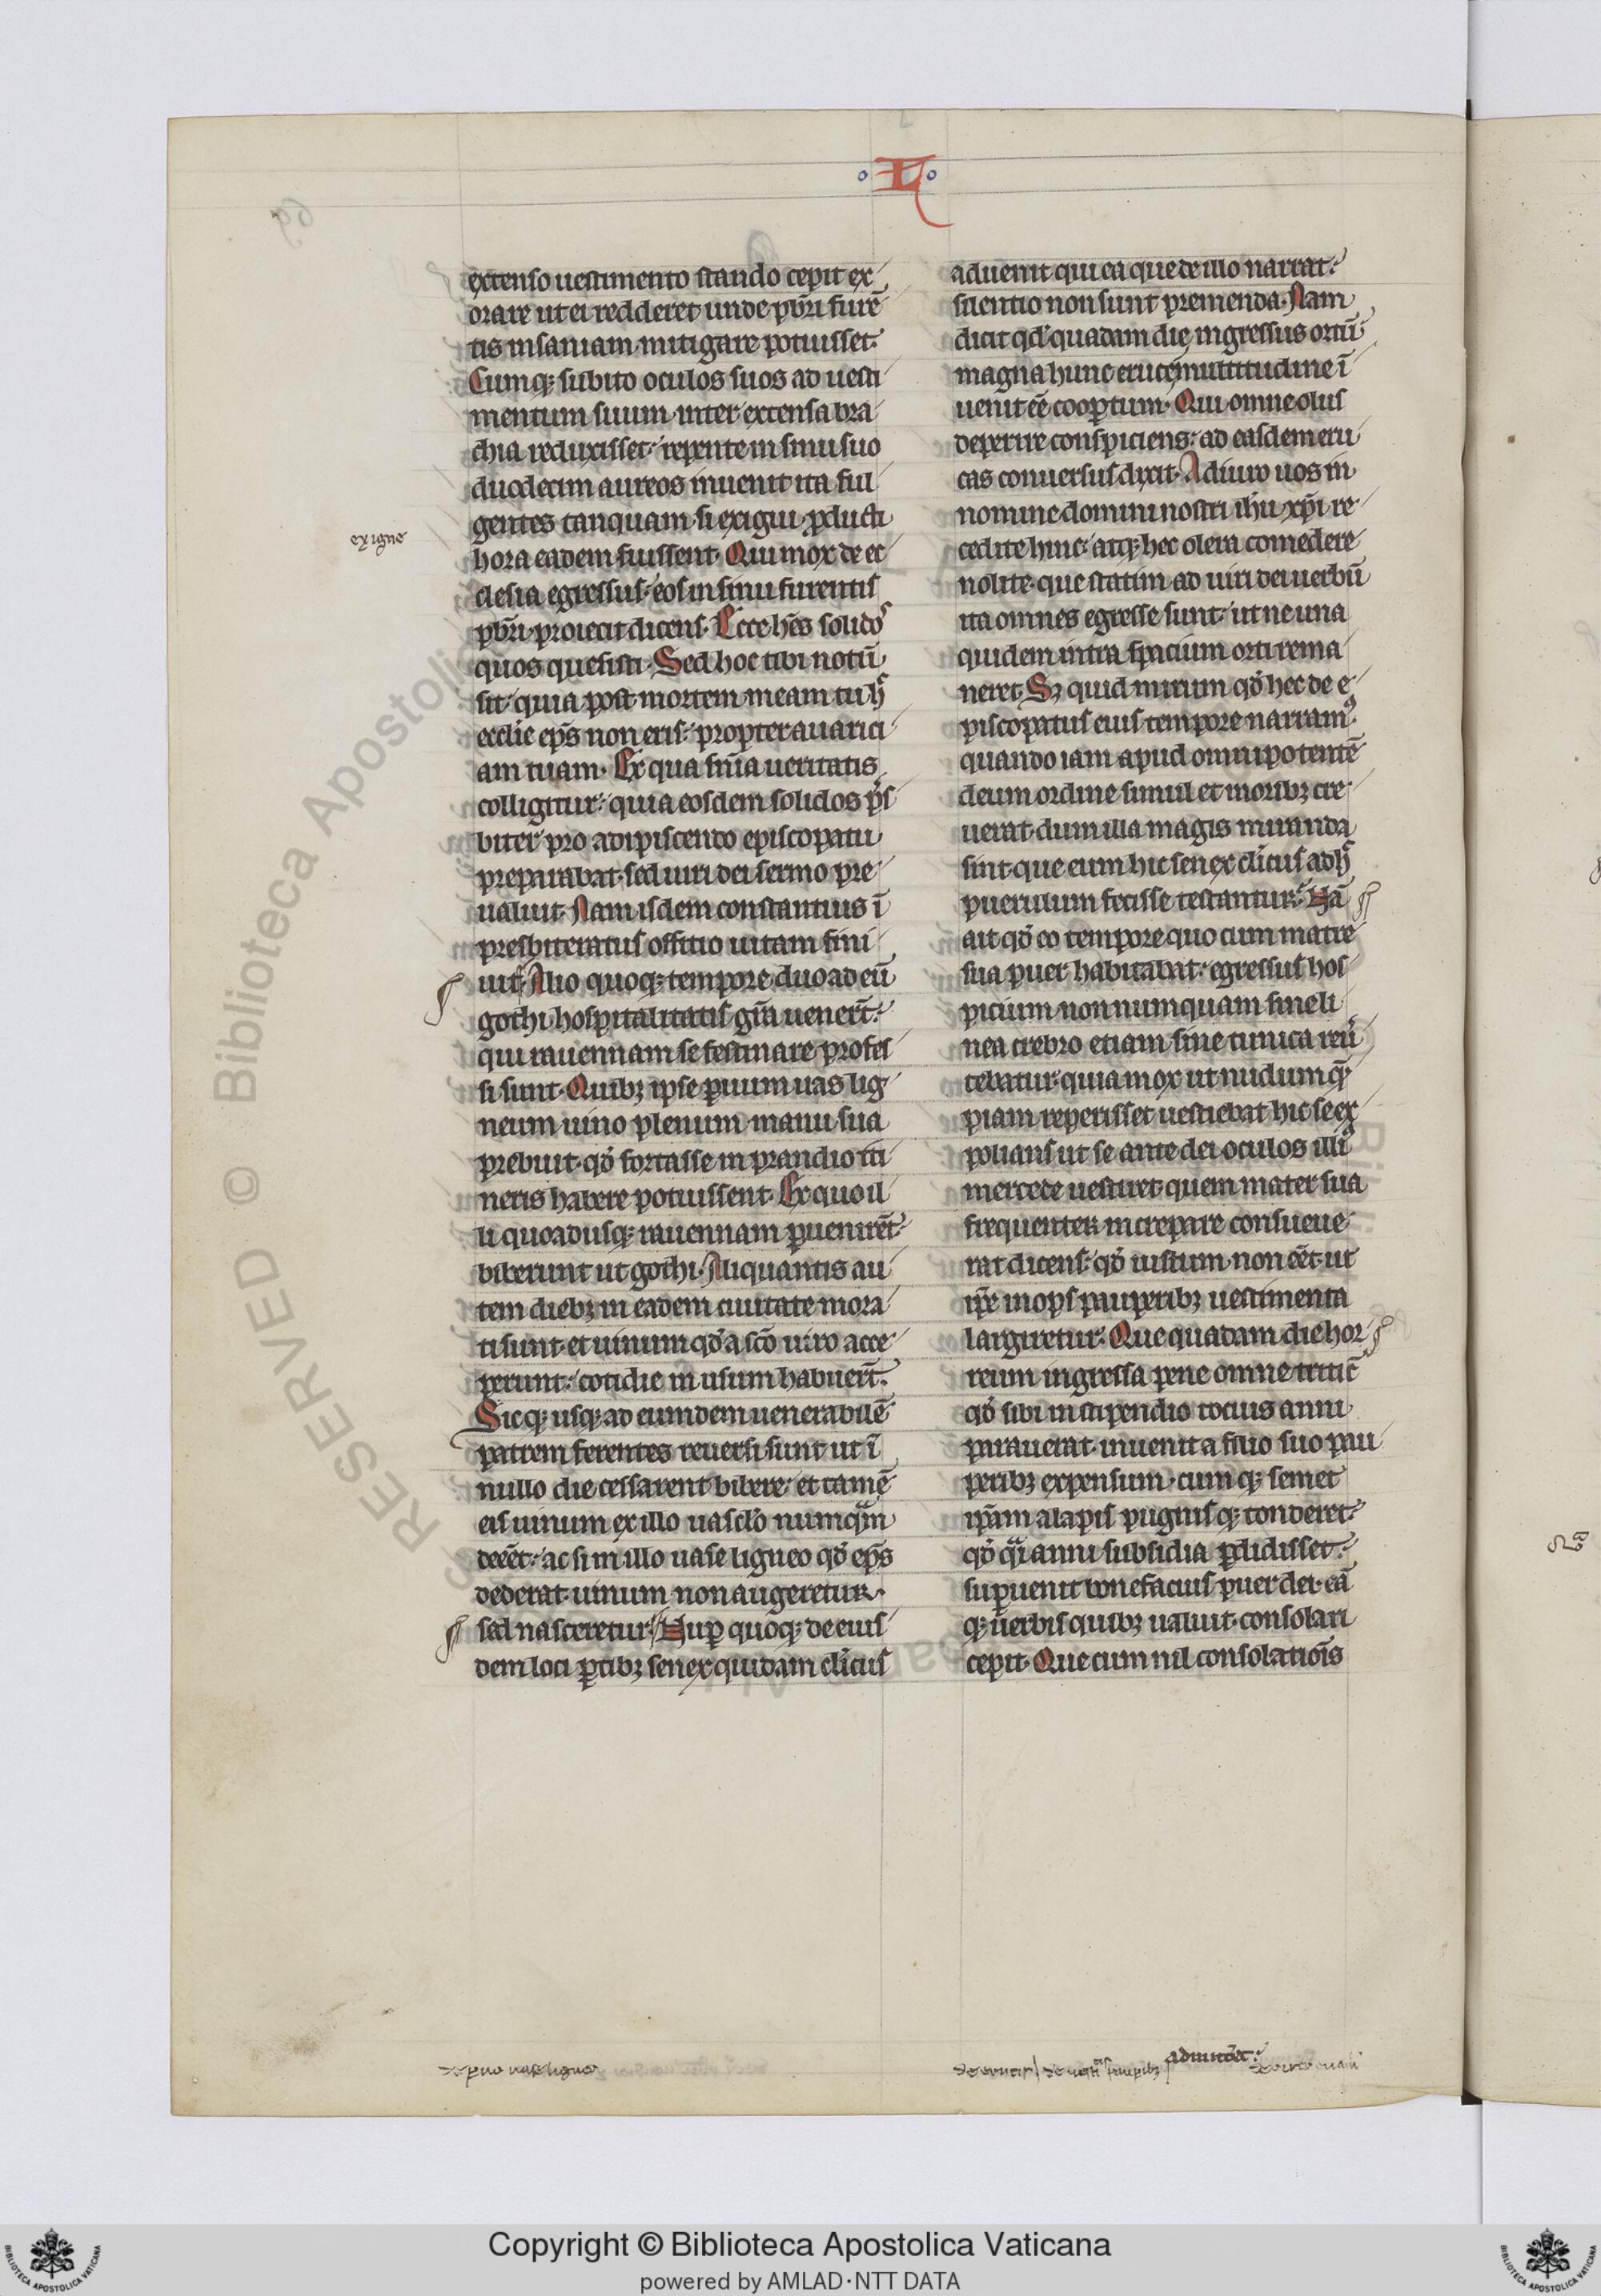 L
extenso uestimento stando cepit ex
orare ut ei redderet unde pb̄ri furē
tis insaniam mitigare potuisset.
Cumq; subito oculos suos ad uesti
mentum suum inter extensa bra
chia reduxisset. repente in sinu suo
duodecim aureos inuenit ita ful
gentes tanquam si exigui ꝓducti
ex igne
hora eadem fuissent. Qui mox de ec
clesia egressus. eos in sinu furentis
pb̄ri proiecit dicens. Ecce hēs solidos
quos quesisti. Sed hoc tibi notū
sit. quia post mortem meam tu hꝰ
ecclie ep̄s non eris. propter auarici
am tuam. Ex qua sn̄ia ueritatis
colligitur. quia eosdem solidos p̄s
biter pro adipiscendo episcopatu
preparabat. sed uiri dei sermo pre
ualuit. Nam isdem constantius ī
presbiteratus offitio uitam fini
uit. Alio quoq; tempore duo ad eū
gothi hospitalitatis gr̄a uener̄t.
qui rauennam se festinare profes
si sunt. Quib; ipse ꝑuum uas lig
neum uino plenum manu sua
prebuit. qd̄ fortasse in prandio iti
neris habere potuissent. Ex quo il
li quoadusq; rauennam ꝑuenirēt.
biberunt ut gothi. Aliquantis au
tem dieb; in eadem ciuitate mora
ti sunt. et uinum qd̄ a scō uiro acce
perunt. cotidie in usum habuer̄t.
Sicq; usq; ad eumdem uenerabilē
patrem ferentes reuersi sunt ut ī
nullo die cessarent bibere. et tamē
eis uinum ex illo uasclō numqͣm
deēēt. ac si in illo uase ligneo qd̄ ep̄s
dederat. uinum non augeretur.
sed nasceretur. Nuꝑ quoq; de eius
dem loci ꝑtib; senex quidam cl̄icus
aduenit qui ea que de illo narrat.
silentio non sunt premenda. Nam
dicit qd̄ quadam die ingressus ortū
magna hunc eruce multitudine ī
uenit eē cooꝑtum. Qui omne olus
deperire conspiciens. ad easdem eru
cas conuersus dixit. Adiuro uos in
nomine domini nostri ih̄u xp̄i re
cedite hinc. atq; hec olera comedere
nolite. que statim ad uiri dei uerbū
ita omnes egresse sunt. ut ne una
quidem intra spacium orti rema
neret. S; quid mirum qd̄ hec de e
piscopatus eius tempore narramꝰ.
quando iam apud omnipotentē
deum ordine simul et morib; cre
uerat. dum illa magis miranda
sint que eum hic senex cl̄icus adhꝰ
puerulum fecisse testantur. Nā
ait qd̄ eo tempore quo cum matre
sua puer habitabat. egressus hos
picium nonnumquam sine li
nea crebro etiam sine tunica reū
tebatur. quia mox ut nudum q̄m
piam reperisset uestiebat hic se ex
polians ut se ante dei oculos illiꝰ
mercede uestiret. quem mater sua
frequenter increpare consueue
rat dicens. qd̄ iustum non eēt ut
ip̄e inops pauperib; uestimenta
largiretur. Que quadam die hor
reum ingressa pene omne triticū
qd̄ sibi in stipendio totius anni
parauerat. inuenit a filio suo pau
perib; expensum. cumq; semet
ip̄am alapis pugnisq; tonderet.
qd̄ q̄i anni subsidia ꝑdidisset.
suꝑuenit bonefacius puer dei. eā
q; uerbis quib; ualuit. consolari
cepit. Que cum nil consolationis
admitteret.
de ꝑuo uase ligneo
de erucis
Copyright © Biblioteca Apostolica Vaticana
powered by AMLAD·NTT DATA
RESERVED © Biblioteca Apostolica